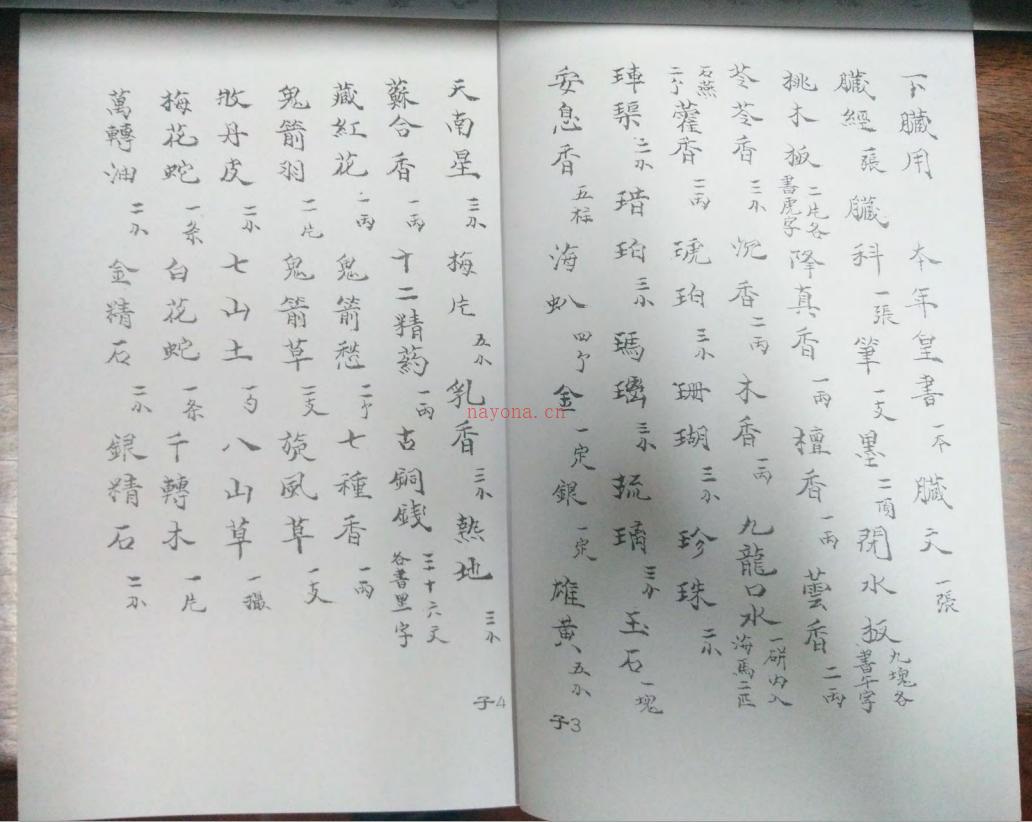 下臟用 本年皇書一本 臟文一張
臟經張 臟科一張 筆一支 墨二頂 閉水板九塊各書午字
桃木板二片各書虎字 降真香一両 檀香一両 蕓香二両
苓苓香三小 沉香二両 木香一両 九龍口水一研内入海馬二匹
石燕二个 藿香二両 琥珀三小 珊瑚三小 珍珠二小
琲琹二小 琣珀三小 瑪瑙三小 琉璃三小 玉石一塊
安息香五标 海叭四个 金一定 銀一定 雄黄五小
子3
天南星三小 梅片五小 乳香三小 熱地三小
蘇合香一両 十二精药一両 古銅錢三十六文各書里字
藏紅花一両 鬼箭愁二个 七種香一両
鬼箭羽二片 鬼箭草二支 旋風草一支
牧丹皮二小 七山土一勺 八山草一撮
梅花蛇一条 白花蛇一条 千轉木一片
萬轉油二小 金精石二小 銀精石二小
子4
nayona.cn